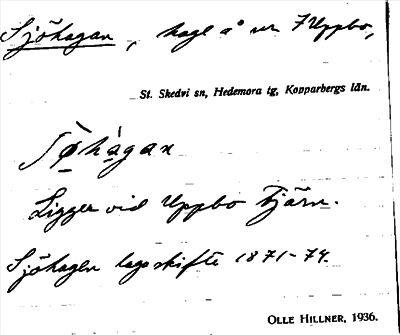 Sjöhagan, hage å nr 7 Uppbo,
St. Skedvi sn, Hedemora tg, Kopparbergs län.
Ligger vid Uppbo tjärn.
Sjöhagen laga skifte 1871-74.
OLLE HILLNER, 1936.